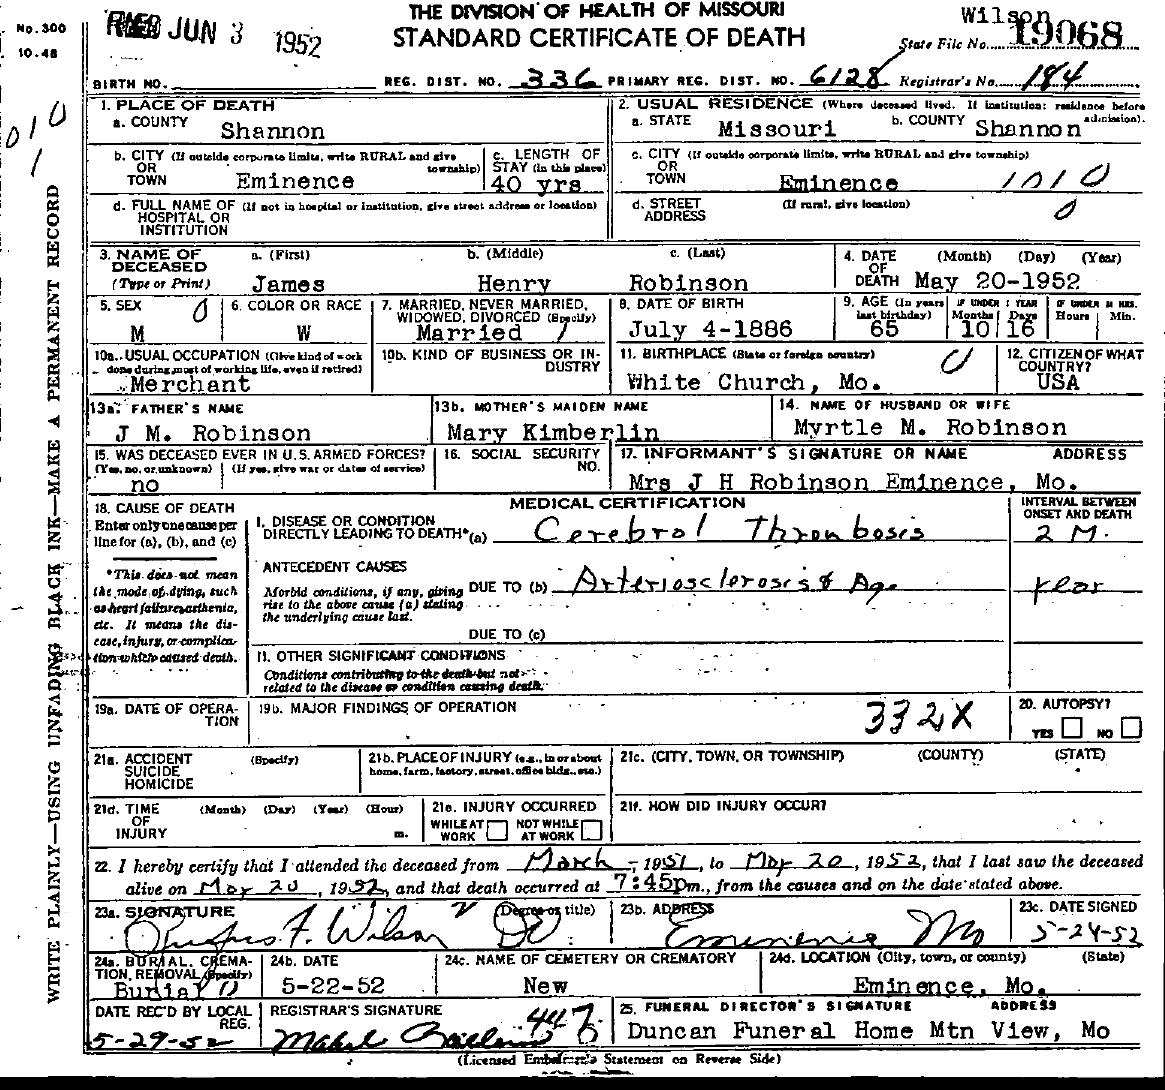 No. 300
10.48
FILED JUN 3 1952
THE DIVISION OF HEALTH OF MISSOURI
STANDARD CERTIFICATE OF DEATH
Wilson
State File No. 19068
BIRTH NO. REG. DIST. NO. 336 PRIMARY REG. DIST. NO. 6128 Registrar's No. 184
010
1
WRITE PLAINLY—USING UNFADING BLACK INK—MAKE A PERMANENT RECORD
1. PLACE OF DEATH
a. COUNTY Shannon
2. USUAL RESIDENCE (Where deceased lived. If institution: residence before admission).
a. STATE Missouri b. COUNTY Shannon
b. CITY (If outside corporate limits, write RURAL and give township)
OR
TOWN Eminence
c. LENGTH OF STAY (in this place)
40 yrs
c. CITY (If outside corporate limits, write RURAL and give township)
OR
TOWN Eminence 1010
d. FULL NAME OF (If not in hospital or institution, give street address or location)
HOSPITAL OR
INSTITUTION
d. STREET (If rural, give location)
ADDRESS 0
3. NAME OF DECEASED
(Type or Print)
a. (First) b. (Middle) c. (Last)
James Henry Robinson
4. DATE OF DEATH (Month) (Day) (Year)
May 20-1952
5. SEX 0
M
6. COLOR OR RACE
W
7. MARRIED, NEVER MARRIED, WIDOWED, DIVORCED (Specify)
Married 1
8. DATE OF BIRTH
July 4-1886
9. AGE (In years last birthday)
65
IF UNDER 1 YEAR
Months Days
10 16
IF UNDER 24 HRS.
Hours Min.
10a. USUAL OCCUPATION (Give kind of work done during most of working life, even if retired)
Merchant
10b. KIND OF BUSINESS OR INDUSTRY
11. BIRTHPLACE (State or foreign country) 0
White Church, Mo.
12. CITIZEN OF WHAT COUNTRY?
USA
13a. FATHER'S NAME
J M. Robinson
13b. MOTHER'S MAIDEN NAME
Mary Kimberlin
14. NAME OF HUSBAND OR WIFE
Myrtle M. Robinson
15. WAS DECEASED EVER IN U.S. ARMED FORCES?
(Yes, no, or unknown) (If yes, give war or dates of service)
no
16. SOCIAL SECURITY NO.
17. INFORMANT'S SIGNATURE OR NAME ADDRESS
Mrs J H Robinson Eminence, Mo.
18. CAUSE OF DEATH
Enter only one cause per line for (a), (b), and (c)
*This does not mean the mode of dying, such as heart failure, asthenia, etc. It means the disease, injury, or complication which caused death.
MEDICAL CERTIFICATION
INTERVAL BETWEEN ONSET AND DEATH
I. DISEASE OR CONDITION
DIRECTLY LEADING TO DEATH*(a) Cerebral Thrombosis 2 M.
ANTECEDENT CAUSES
Morbid conditions, if any, giving rise to the above cause (a) stating the underlying cause last.
DUE TO (b) Arteriosclerosis & Age year
DUE TO (c)
II. OTHER SIGNIFICANT CONDITIONS
Conditions contributing to the death but not related to the disease or condition causing death.
19a. DATE OF OPERATION
19b. MAJOR FINDINGS OF OPERATION
332X
20. AUTOPSY?
YES NO
21a. ACCIDENT (Specify)
SUICIDE
HOMICIDE
21b. PLACE OF INJURY (e.g., in or about home, farm, factory, street, office bldg., etc.)
21c. (CITY, TOWN, OR TOWNSHIP) (COUNTY) (STATE)
21d. TIME (Month) (Day) (Year) (Hour)
OF
INJURY m.
21e. INJURY OCCURRED
WHILE AT WORK NOT WHILE AT WORK
21f. HOW DID INJURY OCCUR?
22. I hereby certify that I attended the deceased from March, 1951, to May 20, 1952, that I last saw the deceased
alive on May 20, 1952, and that death occurred at 7:45pm., from the causes and on the date stated above.
23a. SIGNATURE (Degree or title)
F. Wilson DO
23b. ADDRESS
Eminence Mo
23c. DATE SIGNED
5-24-52
24a. BURIAL, CREMATION, REMOVAL (Specify)
Burial 0
24b. DATE
5-22-52
24c. NAME OF CEMETERY OR CREMATORY
New
24d. LOCATION (City, town, or county) (State)
Eminence, Mo.
DATE REC'D BY LOCAL REG.
5-29-52
REGISTRAR'S SIGNATURE
Mabel
25. FUNERAL DIRECTOR'S SIGNATURE ADDRESS
Duncan Funeral Home Mtn View, Mo
(Licensed Embalmer's Statement on Reverse Side)